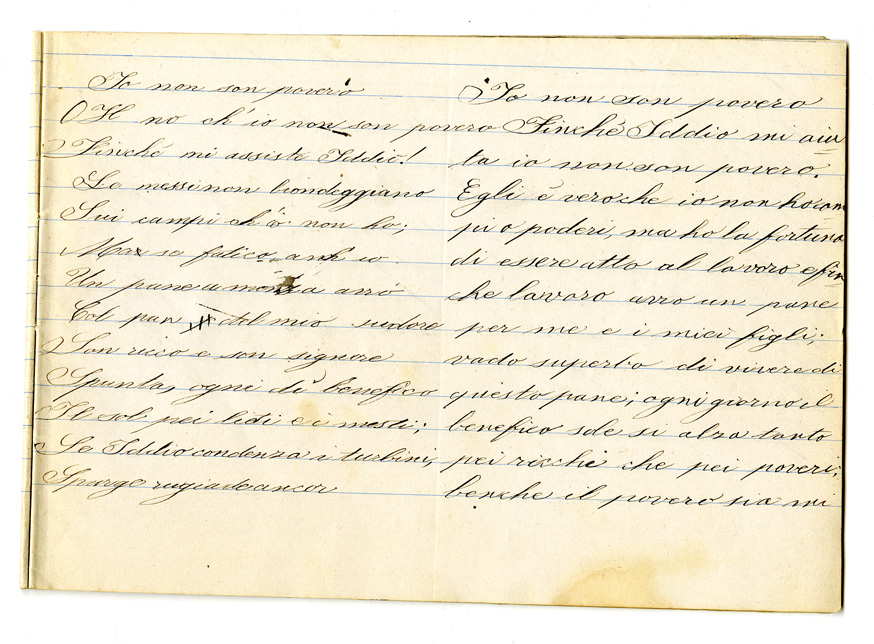 Io non son povero
OH no ch'io non son povero
Finché mi assiste Iddio!
Le messi non biondeggiano
Sui campi ch'io non ho;
Ma se fatico anch io
Un pane a mensa avrò
Col pan del mio sudore
Son ricco e son signore
Spunta, ogni dì benefico
Il sol pei lidi e i mesti;
Se Iddio condenza i turbini,
Sparge rugiade ancor
Io non son povero
Finché Iddio mi aiu
ta io non son povero.
Egli é vero che io non ho cam
pi o poderi, ma ho la fortuna
di essere atto al lavoro e fin
che lavoro avro un pane
per me e i miei figli;
vado superbo di vivere di
questo pane; ogni giorno il
benefico sole si alza tanto
pei ricchi che pei poveri;
benche il povero sia mi